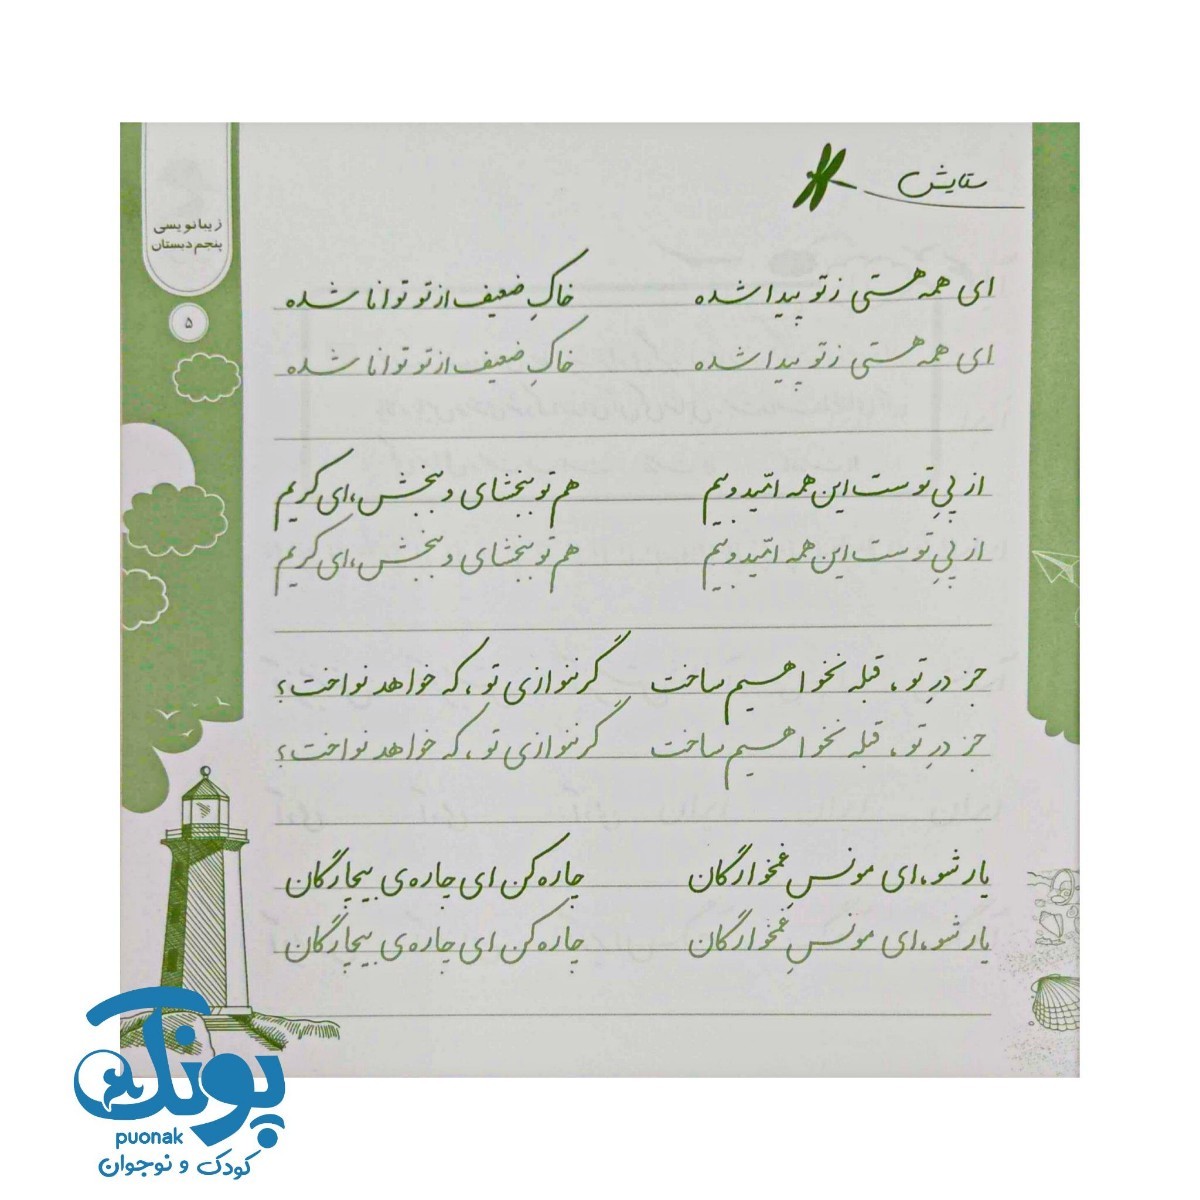 ستایش
زیبانویسی
پنجم دبستان
۵
ای همه هستی ز تو پیدا شده خاکِ ضعیف از تو توانا شده
ای همه هستی ز تو پیدا شده خاکِ ضعیف از تو توانا شده
از پیِ توست این همه امّید و بیم هم تو ببخشای و ببخش، ای کریم
از پیِ توست این همه امّید و بیم هم تو ببخشای و ببخش، ای کریم
جز درِ تو، قبله نخواهیم ساخت گر ننوازی تو، که خواهد نواخت؟
جز درِ تو، قبله نخواهیم ساخت گر ننوازی تو، که خواهد نواخت؟
یار شو، ای مونسِ غمخوارگان چاره کن ای چاره‌ی بیچارگان
یار شو، ای مونسِ غمخوارگان چاره کن ای چاره‌ی بیچارگان
پونک
puonak
کودک و نوجوان